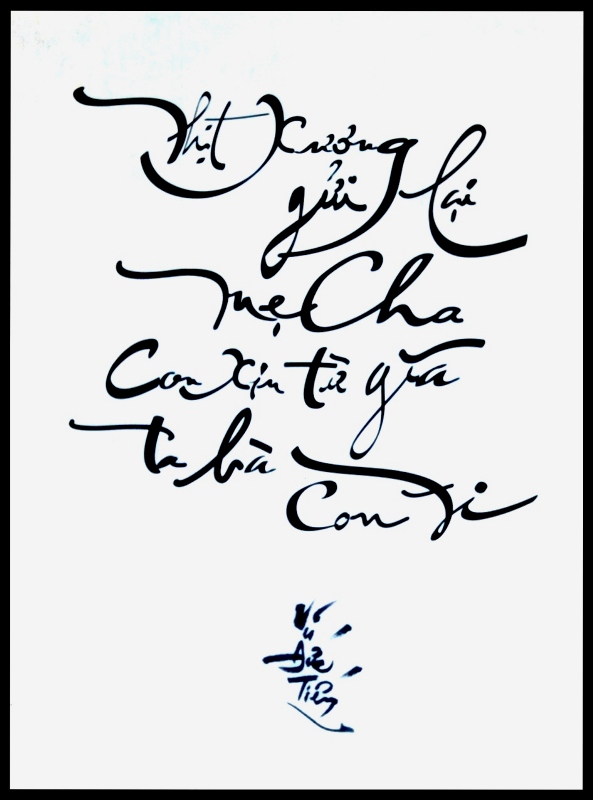 Thịt Xương
gửi lại
mẹ Cha
Con xin từ giã
ta bà
Con Đi
Vũ
Đức
Tiến